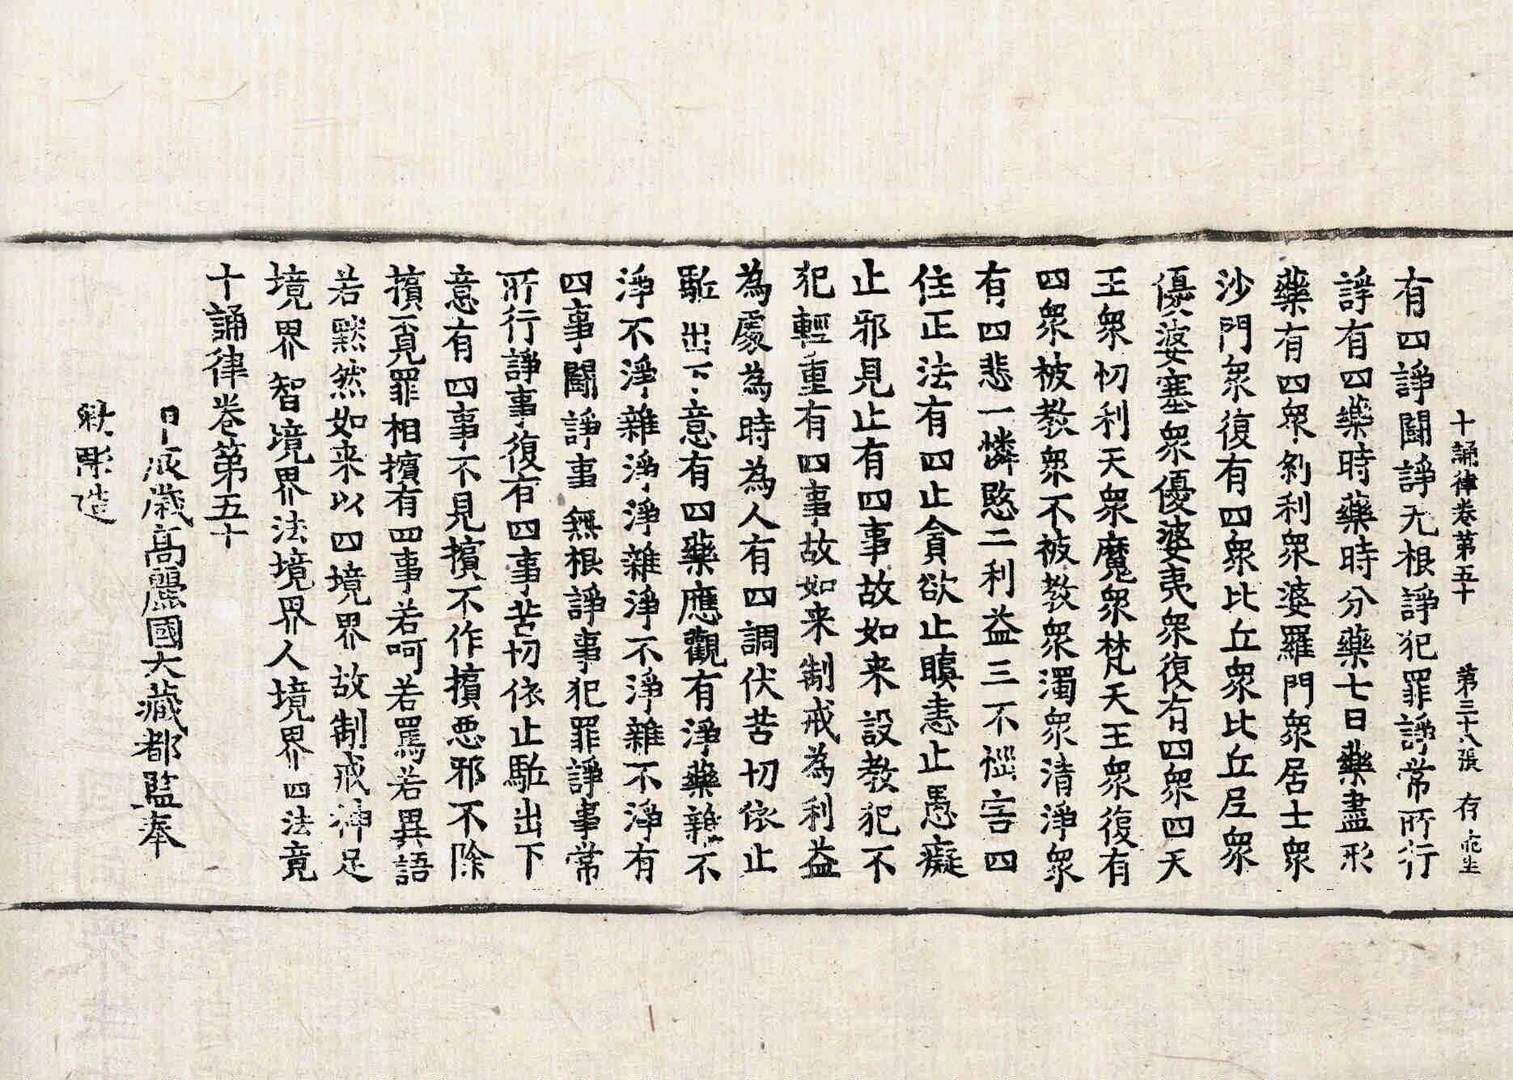 十誦律卷第五十 第三十八張 存
有四諍鬪諍无根諍犯罪諍常所行
諍有四藥時藥時分藥七日藥盡形
藥有四衆刹利衆婆羅門衆居士衆
沙門衆復有四衆比丘衆比丘尼衆
優婆塞衆優婆夷衆復有四衆四天
王衆忉利天衆魔衆梵天王衆復有
四衆被教衆不被教衆濁衆清淨衆
有四悲一憐愍二利益三不惱害四
住正法有四止貪欲止瞋恚止愚癡
止邪見止有四事故如来設教犯不
犯輕重有四事故如来制戒為利益
為處為時為人有四調伏苦切依止
駈出下意有四藥應觀有淨藥雜不
淨不淨雜淨淨雜淨不淨雜不淨有
四事鬪諍事無根諍事犯罪諍事常
所行諍事復有四事苦切依止駈出下
意有四事不見擯不作擯惡邪不除
擯覓罪相擯有四事若呵若罵若異語
若默然如来以四境界故制戒神足
境界智境界法境界人境界四法竟
十誦律卷第五十
歲高麗國大藏都監奉
勑彫造